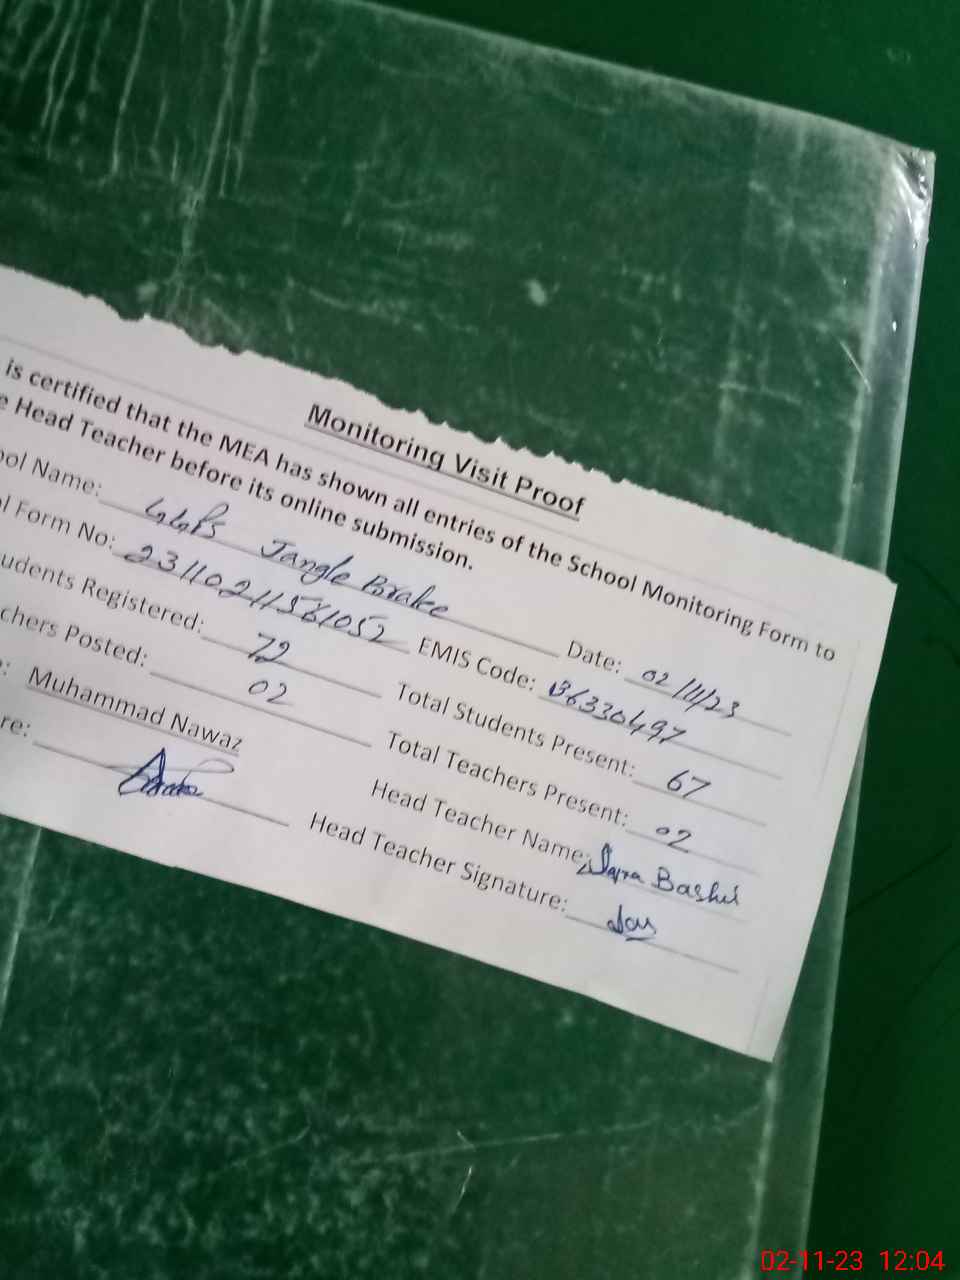 Monitoring Visit Proof
is certified that the MEA has shown all entries of the School Monitoring Form to
e Head Teacher before its online submission.
ool Name: GGPS Jangle Brake Date: 02/11/23
l Form No: 23110211561052 EMIS Code: 36330497
udents Registered: 72 Total Students Present: 67
chers Posted: 02 Total Teachers Present: 02
e: Muhammad Nawaz Head Teacher Name: Bashir
re: Head Teacher Signature:
02-11-23 12:04